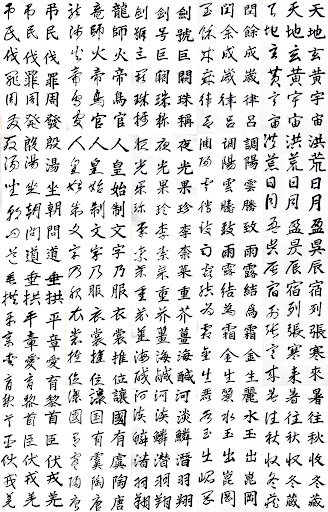 天地玄黃宇宙洪荒日月盈昃辰宿列張寒來暑往秋收冬藏
天地玄黃宇宙洪荒日月盈昃辰宿列張寒來暑往秋收冬藏
天地玄黃宇宙洪荒日月盈昃辰宿列張寒來暑往秋收冬藏
閏餘成歲律呂調陽雲騰致雨露結為霜金生麗水玉出崑岡
閏餘成歲律呂調陽雲騰致雨露結為霜金生麗水玉出崑岡
閏餘成歲律呂調陽雲騰致雨露結為霜金生麗水玉出崑岡
劍號巨闕珠稱夜光果珍李柰菜重芥薑海鹹河淡鱗潛羽翔
劍號巨闕珠稱夜光果珍李柰菜重芥薑海鹹河淡鱗潛羽翔
劍號巨闕珠稱夜光果珍李柰菜重芥薑海鹹河淡鱗潛羽翔
龍師火帝鳥官人皇始制文字乃服衣裳推位讓國有虞陶唐
龍師火帝鳥官人皇始制文字乃服衣裳推位讓國有虞陶唐
龍師火帝鳥官人皇始制文字乃服衣裳推位讓國有虞陶唐
弔民伐罪周發殷湯坐朝問道垂拱平章愛育黎首臣伏戎羌
弔民伐罪周發殷湯坐朝問道垂拱平章愛育黎首臣伏戎羌
弔民伐罪周發殷湯坐朝問道垂拱平章愛育黎首臣伏戎羌